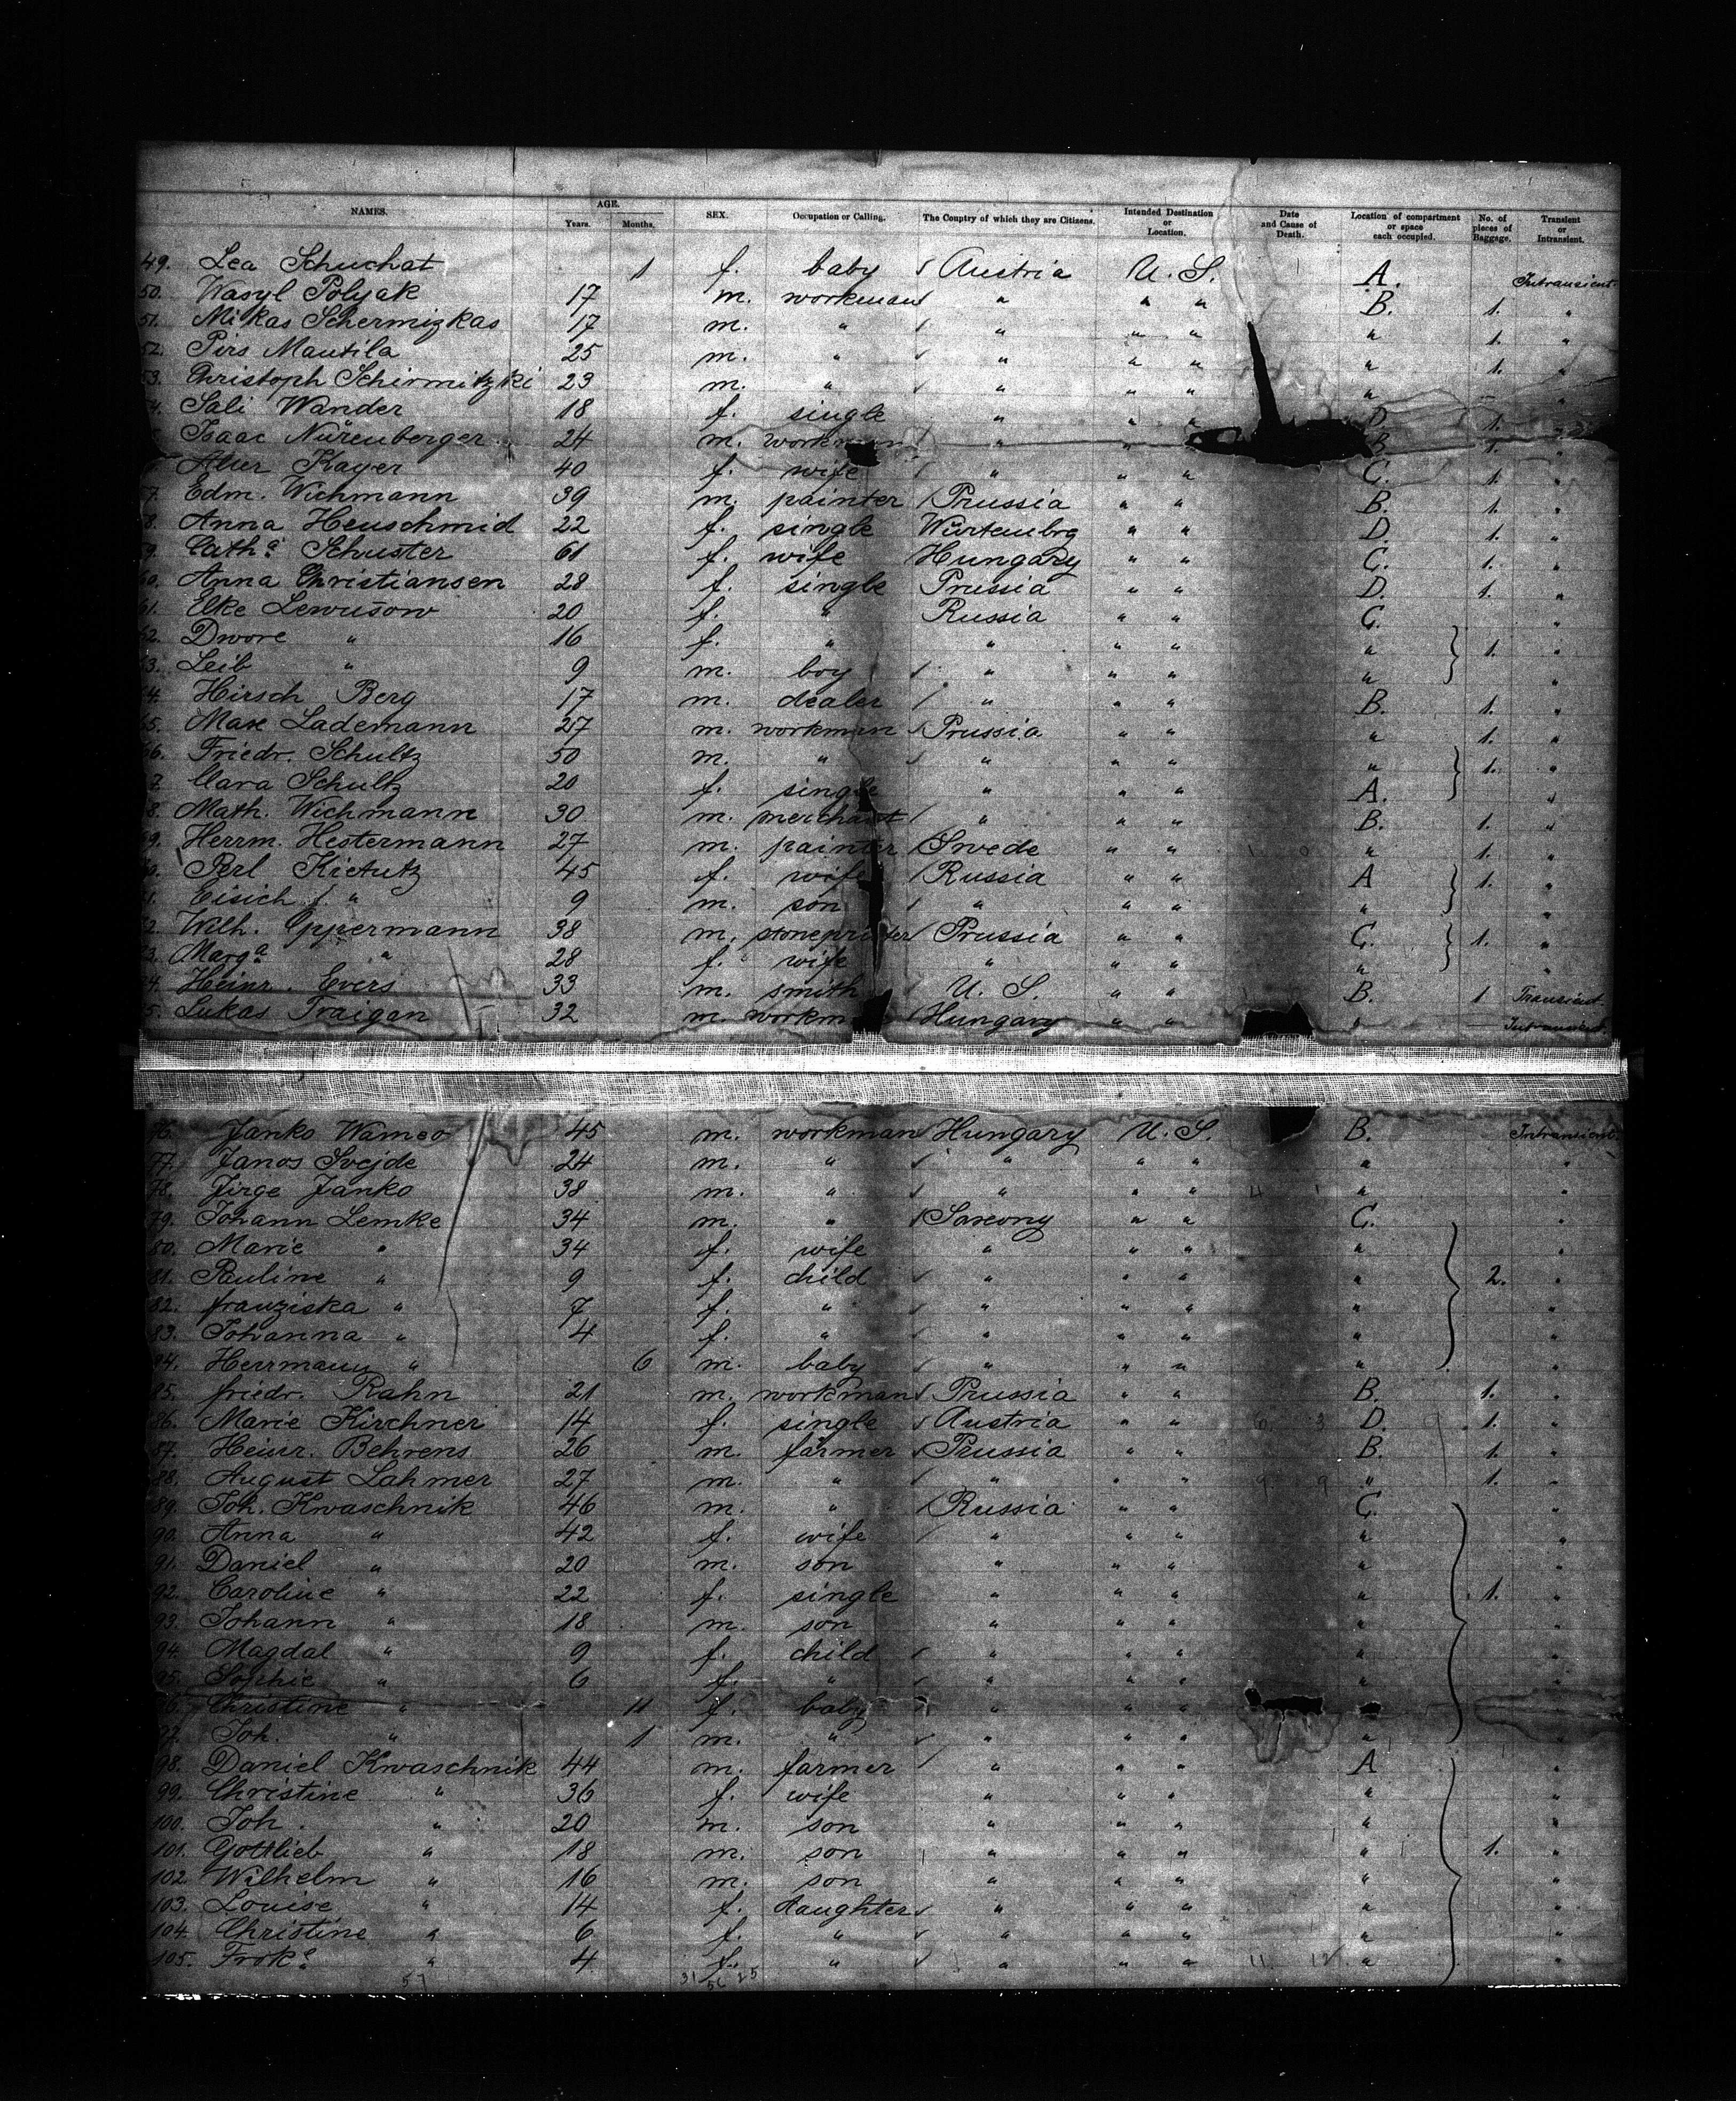 NAMES. AGE. Years. Months. SEX. Occupation or Calling. The Country of which they are Citizens. Intended Destination or Location. Date and Cause of Death. Location of compartment or space each occupied. No. of pieces of Baggage. Transient or Intransient.
49. Lea Schuchat 1 f. baby Austria U. S. A. Intransient
50. Wasyl Polyak 17 m. workman " " " B. 1. "
51. Mikas Schermizkas 17 m. " " " " " 1. "
52. Pirs Mautila 25 m. " " " " " 1. "
53. Christoph Schirmitzki 23 m. " " " " " "
54. Sali Wander 18 f. single " " " D. 1. "
Isaac Nürenberger 24 m. workman " " B. 1. "
Kayer 40 f. wife " " " C. 1. "
57. Edm. Wichmann 39 m. painter Prussia " " B. 1. "
58. Anna Heuschmid 22 f. single Würtembrg " " D. 1. "
59. Catha Schuster 61 f. wife Hungary " " C. 1. "
60. Anna Christiansen 28 f. single Prussia " " D. 1. "
61. Elke Lewusow 20 f. " Russia " " C. "
62. Dwore " 16 f. " " " " " 1. "
63. Leib " 9 m. boy " " " " "
64. Hirsch Berg 17 m. dealer " " " B. 1. "
65. Max Lademann 27 m. workman Prussia " " " 1. "
66. Friedr. Schultz 50 m. " " " " " 1. "
67. Clara Schultz 20 f. single " " " A. "
68. Math. Wichmann 30 m. merchant " " " B. 1. "
69. Herrm. Hestermann 27 m. painter Swede " " " 1. "
70. Perl Kietutz 45 f. wife Russia " " A 1. "
71. Eisich " 9 m. son " " " " "
72. Wilh. Oppermann 38 m. stoneprinter Prussia " " C. 1. "
73. Marga " 28 f. wife " " " " "
74. Heinr. Evers 33 m. smith U. S. " " B. 1 Transient
75. Lukas Traigan 32 m. workm Hungary " " " Intransient
76. Janko Wameo 45 m. workman Hungary U. S. B. Intransient
77. Janos Svejde 24 m. " " " " " "
78. Jirge Janko 38 m. " " " " " "
79. Johann Lemke 34 m. " Saxony " " C. "
80. Marie " 34 f. wife " " " " "
81. Pauline " 9 f. child " " " " 2. "
82. franziska " 7 f. " " " " " "
83. Johanna " 4 f. " " " " " "
84. Herrmann " 6 m. baby " " " " "
85. friedr. Rahn 21 m. workman Prussia " " B. 1. "
86. Marie Kirchner 14 f. single Austria " " D. 1. "
87. Heinr. Behrens 26 m. farmer Prussia " " B. 1. "
88. August Lahmer 27 m. " " " " " 1. "
89. Joh. Kwaschnik 46 m. " Russia " " C. "
90. Anna " 42 f. wife " " " " "
91. Daniel " 20 m. son " " " " "
92. Caroline " 22 f. single " " " " 1. "
93. Johann " 18 m. son " " " " "
94. Magdal " 9 f. child " " " " "
95. Sophie " 6 f. " " " " " "
96. Christine " 11 f. baby " " "
97. Joh. " 1 m. " " " " " "
98. Daniel Kwaschnik 44 m. farmer " " " A "
99. Christine " 36 f. wife " " " " "
100. Joh. " 20 m. son " " " " "
101. Gottlieb " 18 m. son " " " " 1. "
102. Wilhelm " 16 m. son " " " " "
103. Louise " 14 f. daughter " " " " "
104. Christine " 6 f. " " " " " "
105. " 4 f. " " " " " "
57 31 56 25